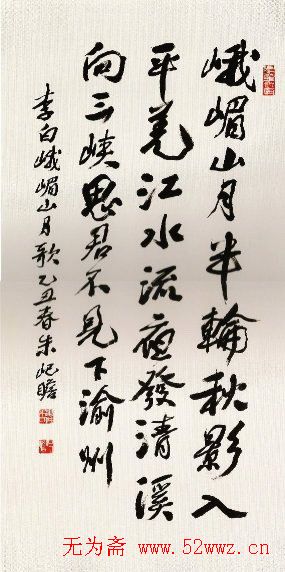 峨嵋山月半輪秋影入
平羌江水流夜發清溪
向三峡思君不見下渝州
李白峨嵋山月歌乙丑春朱屺瞻
无为斋 www.52wwz.cn